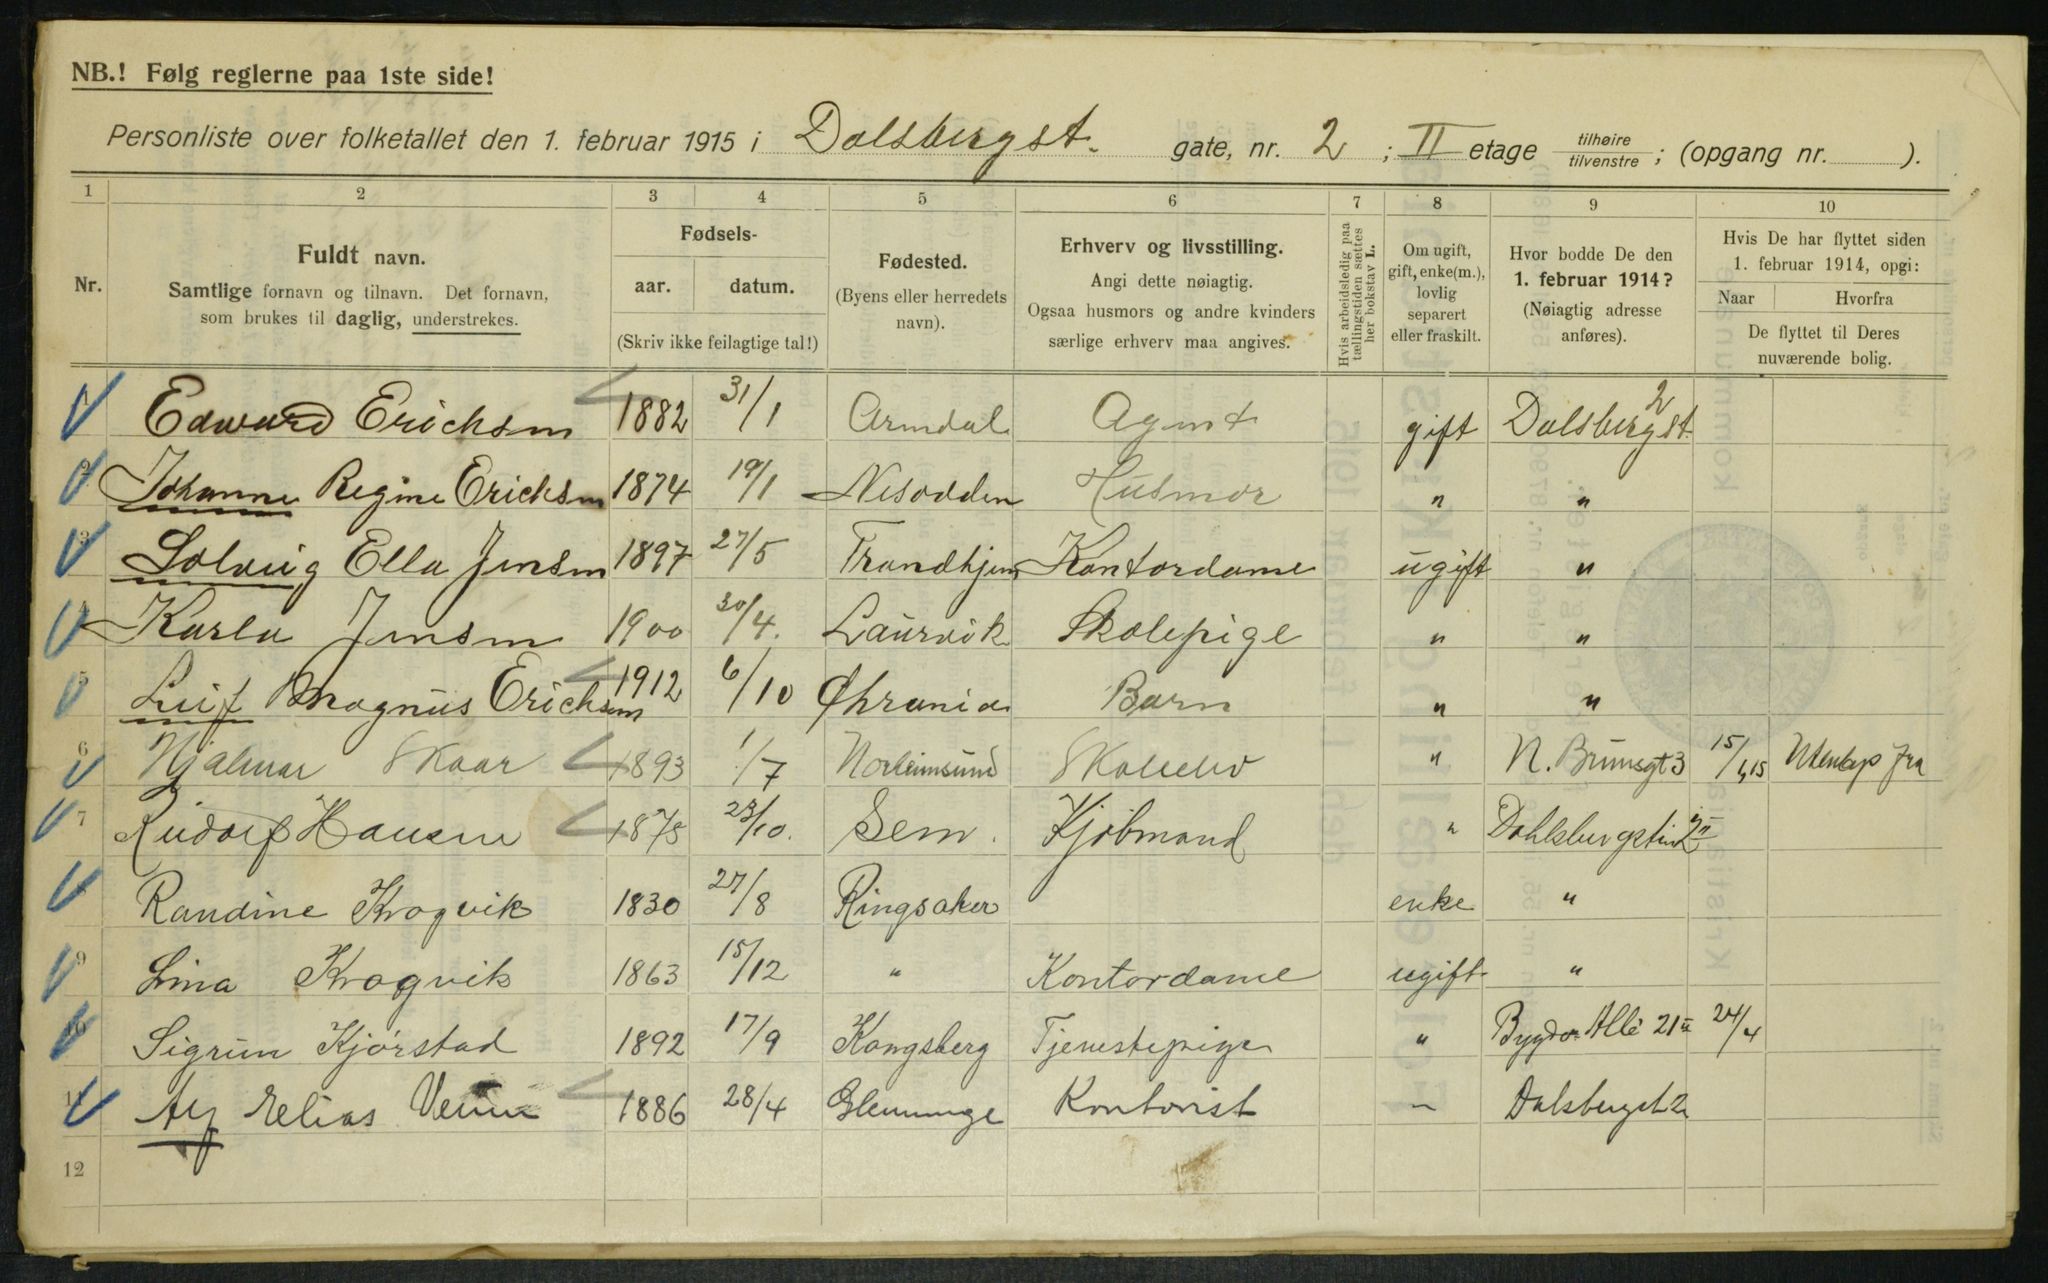 NB.! Følg reglerne paa 1ste side!
Personliste over folketallet den 1. februar 1915 i Dalsbergst. gate, nr. 2 ; II etage tilhøire / tilvenstre ; (opgang nr. ).
1 2 3 4 5 6 7 8 9 10
Nr.
Fuldt navn.
Samtlige fornavn og tilnavn. Det fornavn, som brukes til daglig, understrekes.
Fødsels-
aar. datum.
(Skriv ikke feilagtige tal!)
Fødested.
(Byens eller herredets navn).
Erhverv og livsstilling.
Angi dette nøiagtig.
Ogsaa husmors og andre kvinders særlige erhverv maa angives.
Hvis arbeidsledig paa tællingstiden sættes her bokstav L.
Om ugift, gift, enke(m.), lovlig separert eller fraskilt.
Hvor bodde De den 1. februar 1914?
(Nøiagtig adresse anføres).
Hvis De har flyttet siden 1. februar 1914, opgi:
Naar Hvorfra
De flyttet til Deres nuværende bolig.
1 Edward Erichsen 1882 31/1 Arendal Agent gift Dalsbergst. 2
2 Johanne Regine Erichsen 1874 19/1 Nesodden Husmor " "
3 Solveig Ella Jensen 1897 27/5 Trondhjem Kontordame ugift "
4 Karla Jensen 1900 30/4. Laurvik Skolepige " "
5 Leif Magnus Erichsen 1912 6/10 Chrania Barn " "
6 Hjalmar Skaar 1893 1/7 Norheimsund Skoleelev " N. Brunsgt 3 15/1,15
7 Rudolf Hansen 1875 23/10. Sem. Kjøbmand "
8 Randine Krogvik 1830 27/8 Ringsaker enke "
9 Lina Krogvik 1863 15/12 " Kontordame ugift "
10 Sigrun Kjørstad 1892 17/9 Kongsberg Tjenestepige " Bygdø Allé 21 II 24/4
11 Alf Elias 1886 28/4 Glemminge Kontorist – Dalsbergst 2
12